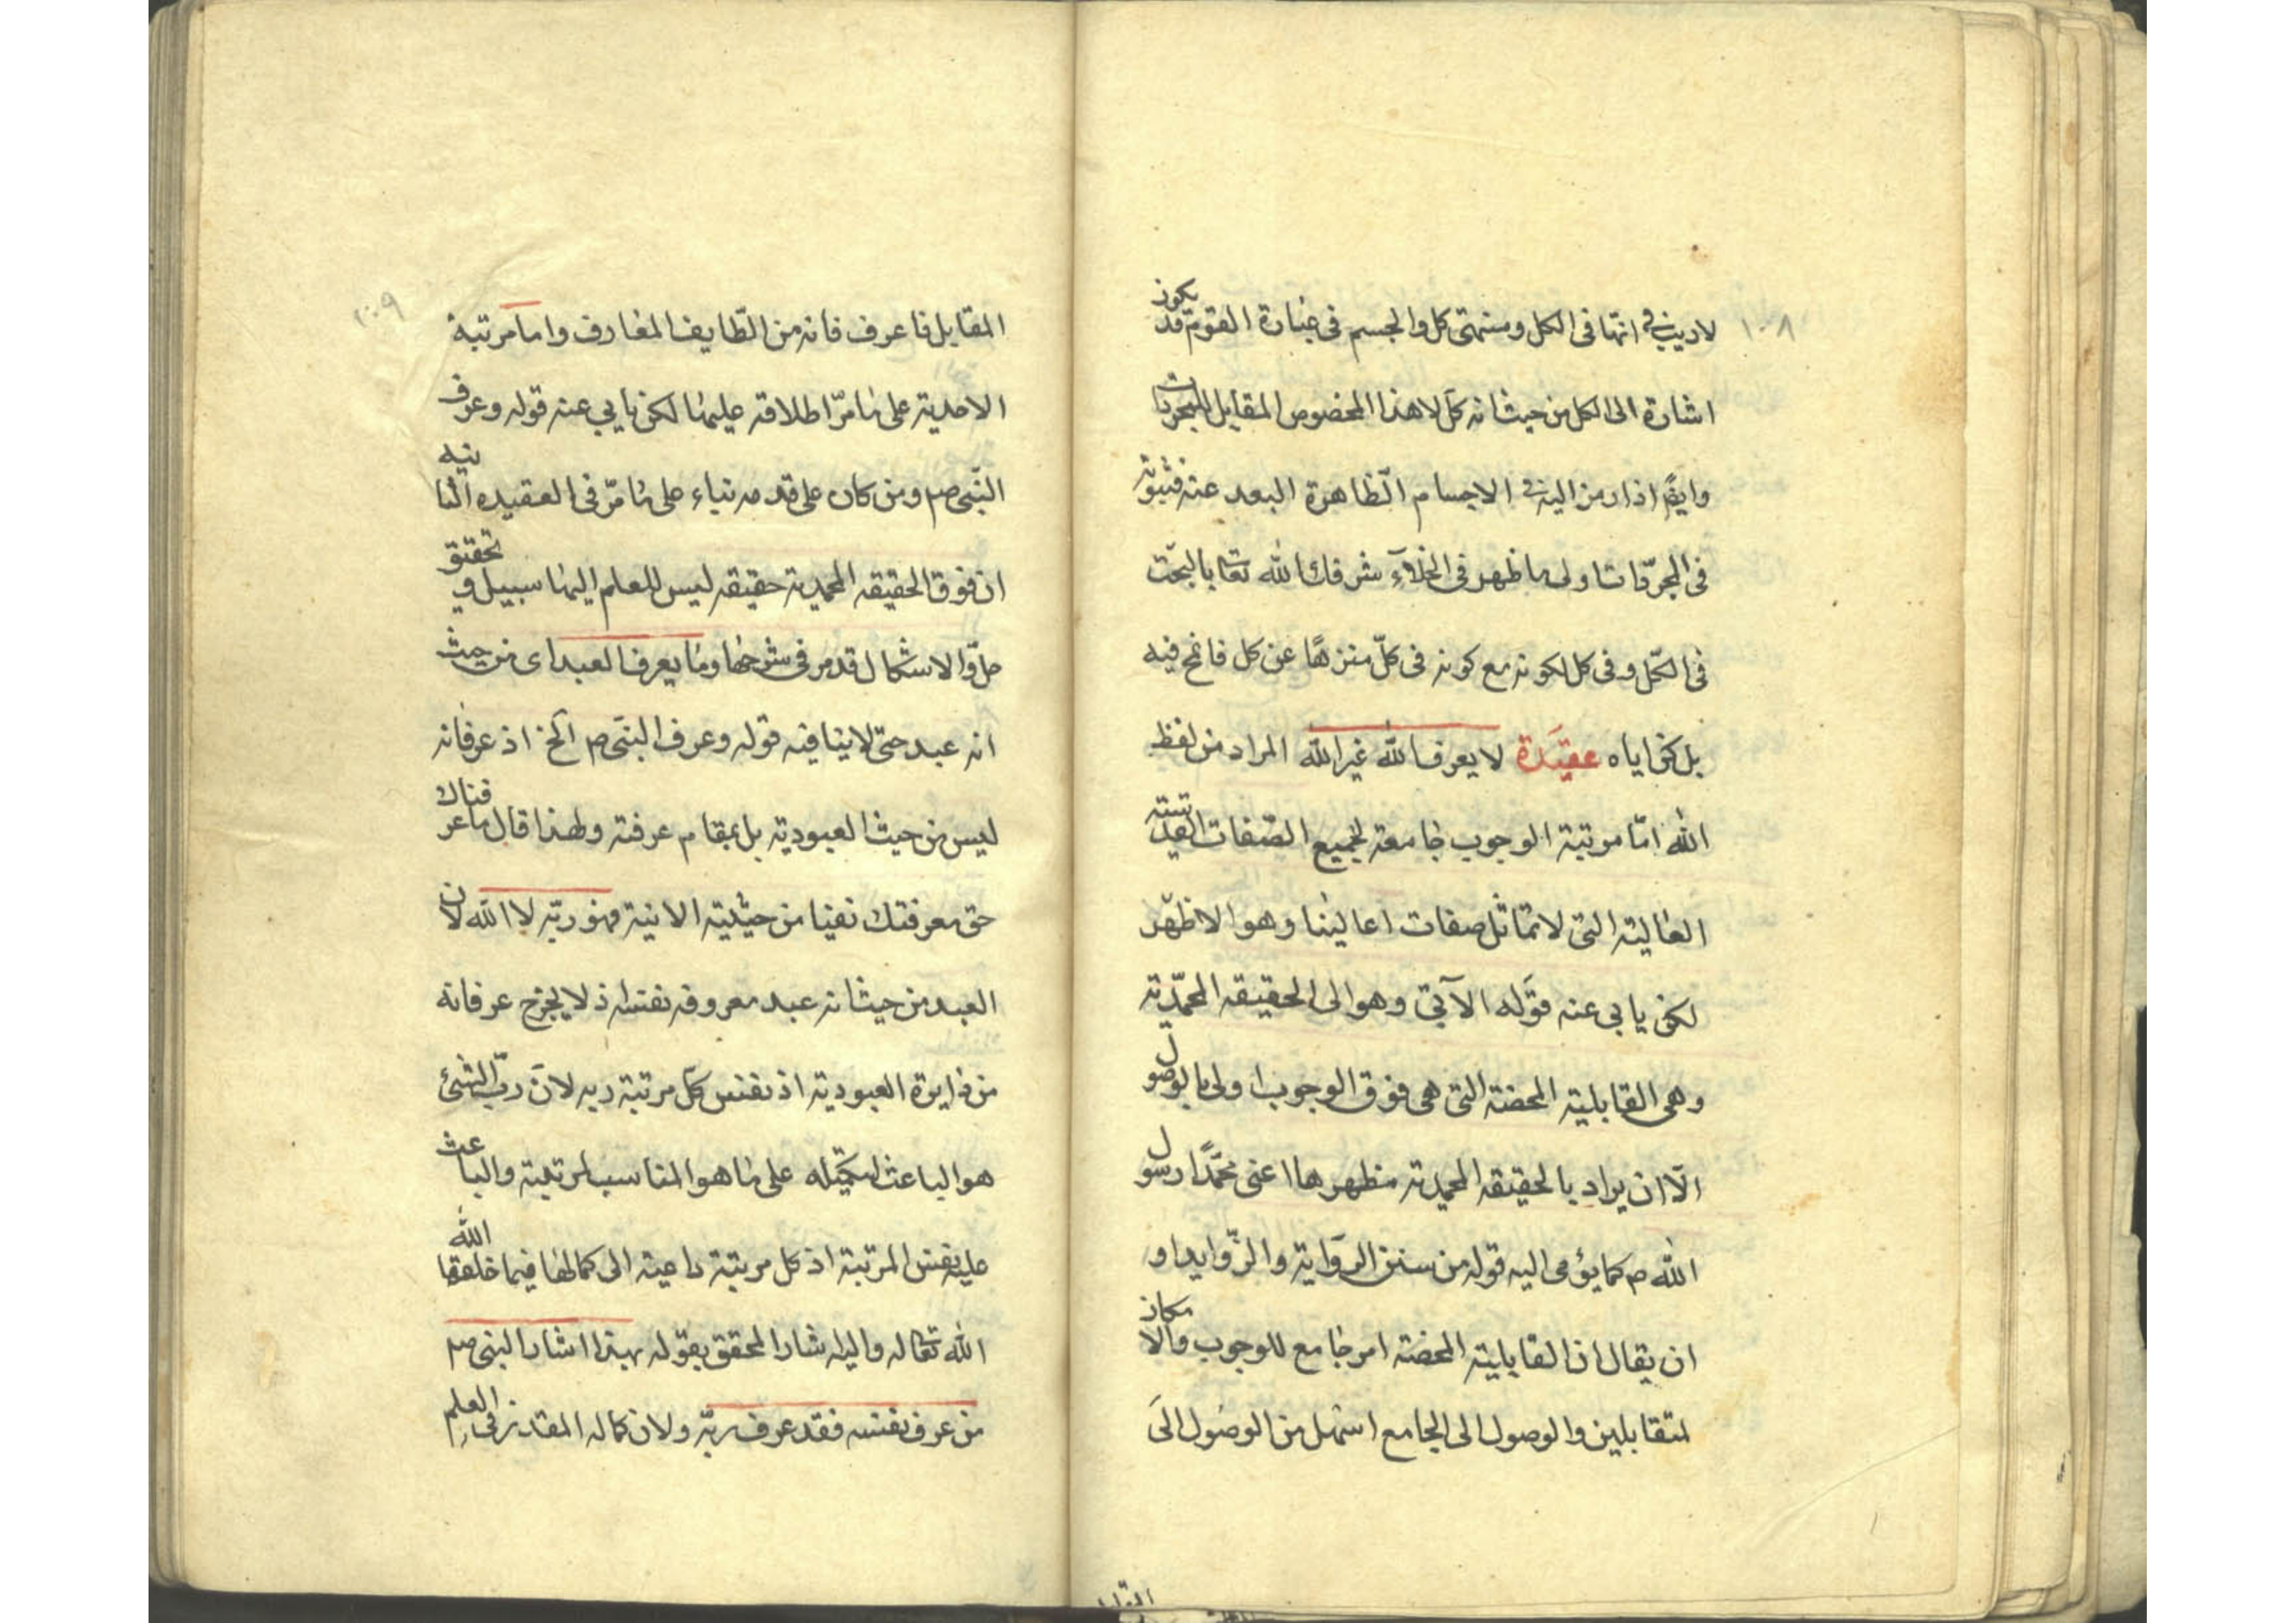 ١٠٨
لا ريب في انها في الكل ومنتهى كل والجسم في عبارة القوم قد يكون
اشارة الى الكل من حيث انه كل لا هذا المخصوص المقابل للمجردات
وايضً اذا رمز اليه في الاجسام الظاهرة البعد عنه فثبوته
في المجردات اولى ما ظهر في الخلآء شرفك الله تعا بالبحت
في الكل وفي كل لكونه مع كونه في كلّ منزهًا عن كل فامح فيه
بل كن اياه عقيدة لا يعرف الله غير الله المراد من لفظ
الله امّا مرتبة الوجوب جامعة لجميع الصّفات القديسية
العالية التي لا تماثل صفات اعالينا وهو الاظهر
لكن يابى عنه قوله الآتي وهو الى الحقيقه المحمّدية
وهي القابلية المحضة التي هي فوق الوجوب اولى بالوصول
الّا ان يراد بالحقيقه المحمدية مظهرها اعنى محمّدًا رسول
الله ص كما يؤمى اليه قوله من سنن الرواية والزّوايد او
ان يقال ان القابلية المحضة امر جامع للوجوب والامكان
لمتقابلين والوصول الى الجامع اسهل من الوصول الى
١٠٩
المقابل فاعرف فانه من الطّايف المعارف واما مرتبة
الاحدية على ما مرّ اطلاقه عليها لكن يابي عنه قوله وعرف
النّبي صم ومن كان على قدمه بناء على ما مرّ في العقيده الثانيه
ان فوق الحقيقه المحمدية حقيقه ليس للعلم اليها سبيل وتحقيق
حلّ والاشكال قد مر في شرحها وما يعرف العبد اى من حيث
انه عبد حتى لا ينافيه قوله وعرف النبي ص الخ اذ عرفانه
ليس من حيث العبودية بل بمقام عرفته ولهذا قال ما عرفناك
حق معرفتك نفيا من حيثية الانية فهو ربّه لا الله لان
العبد من حيث انه عبد معروفه نفسه اذ لا يخرج عرفانه
من دايرة العبودية اذ نفس كل مرتبة ربه لانّ ربّ الشئ
هو الباعث لتكميله على ما هو المناسب لمرتبته والباعث
عليه نفس المرتبة اذ كل مرتبة داعية الى كمالها فيما خلقها الله
الله تعا له واليه اشار المحقق بقوله بهذا اشار النبي صم
من عرف نفسه فقد عرف ربّه ولان كماله المقدر في العلم